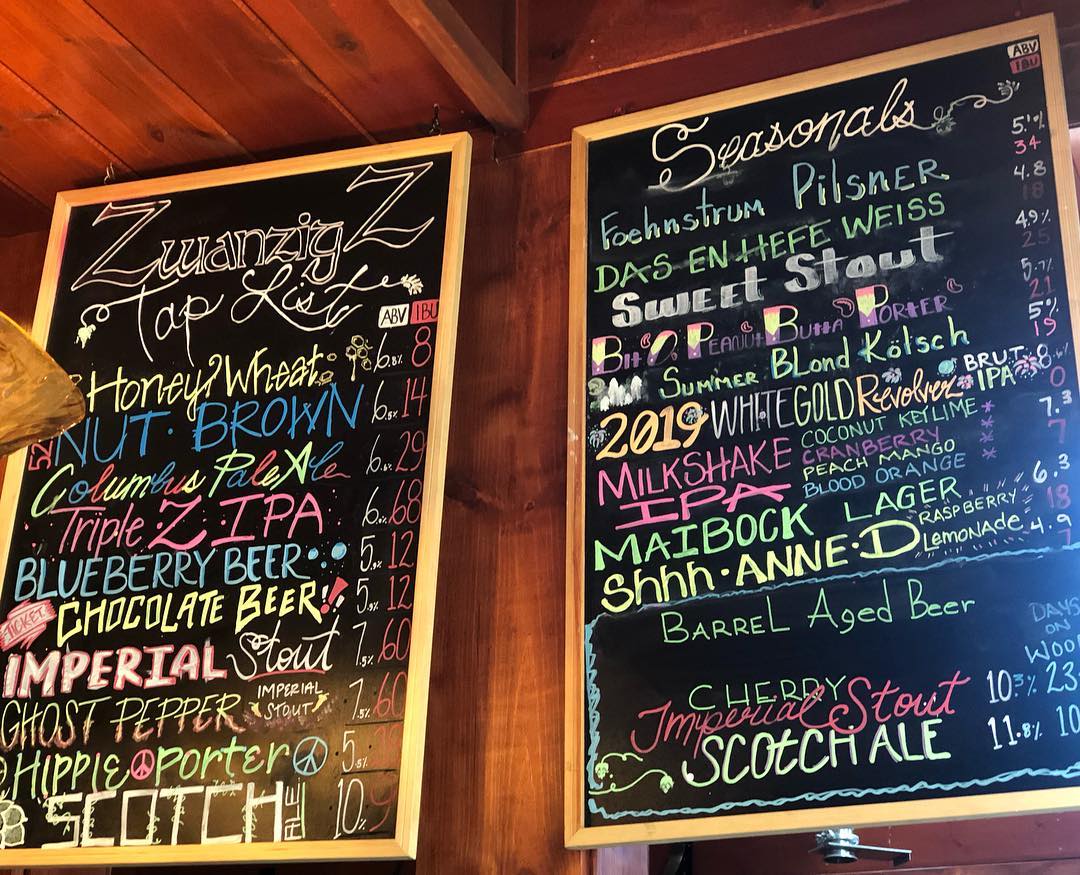 ZwanzigZ
Tap List
ABV IBU
Honey Wheat 6.8% 8
NUT BROWN 6.5% 14
Columbus Pale Ale 6. 29
Triple Z IPA 6. 68
BLUEBERRY BEER 5. 12
CHOCOLATE BEER!! 5. 12
IMPERIAL Stout 7.5% 60
GHOST PEPPER IMPERIAL STOUT 7.5% 60
Hippie porter 5.
SCOTCH ALE 10. 9
ABV
IBU
Seasonals
Foehnstrum PILSNER 5.1% 34
DAS EN HEFE WEISS 4.8 18
Sweet Stout 4.9% 25
Bit O PEANUT BUTTA PORTER 5.7% 21
Summer BLond Kölsch 5% 19
2019 WHITE GOLD Revolver BRUT IPA 8. 0
MILKSHAKE IPA 7.3 7
COCONUT KEY LIME
CRANBERRY
PEACH MANGO
BLOOD ORANGE
MAIBOCK LAGER 6.3 18
Shhh·ANNE·D RASPBERRY Lemonade 4.9 7
BARREL Aged Beer
DAYS
ON
WOO
CHERRY
Imperial Stout 10.3% 23
SCOTCH ALE 11.8% 10